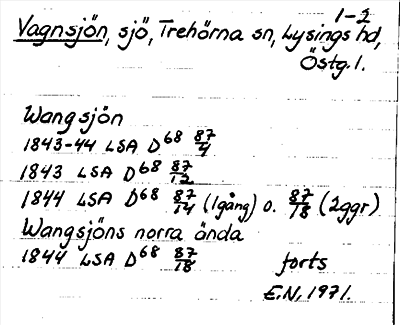 1-2
Vagnsjön, sjö, Trehörna sn, Lysings hd,
Östg. l.
Wangsjön
1843-44 LSA D68 87/4
1843 LSA D68 87/12
1844 LSA D68 87/14 (1gång) o. 87/18 (2ggr)
Wangsjöns norra ända
1844 LSA D68 87/18
forts
E.N, 1971.